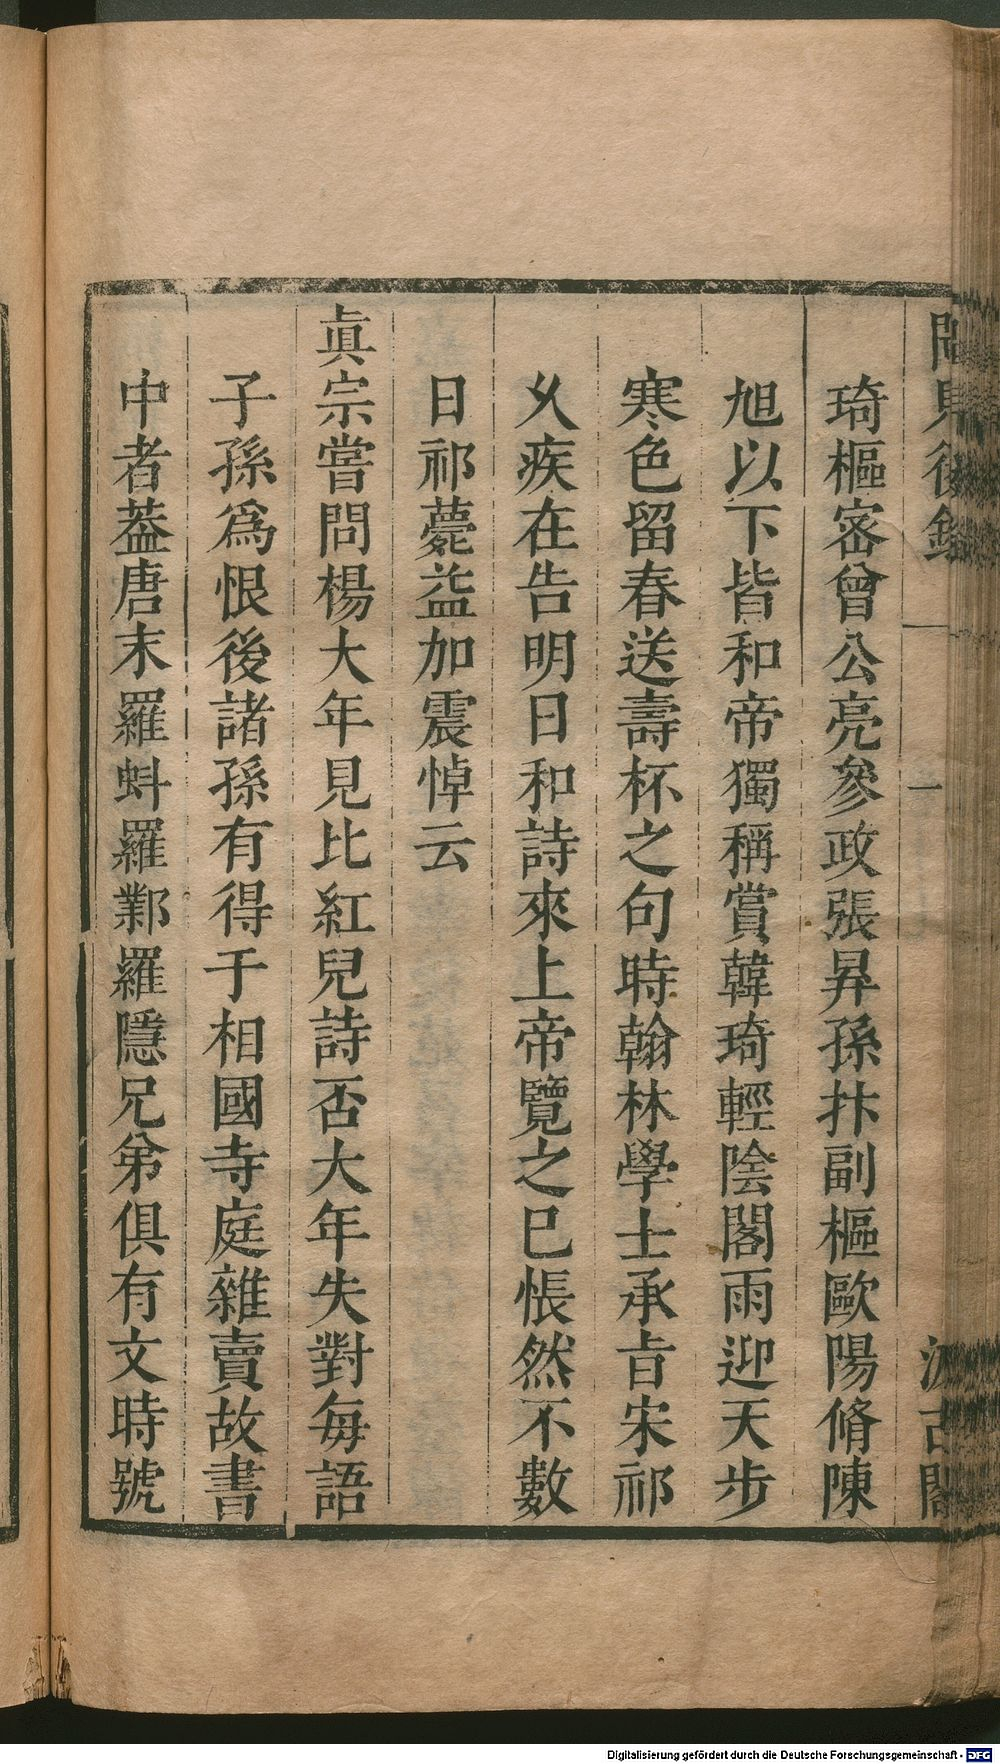 聞見後錄
一
汲古閣
琦樞宻曾公亮參政張昇孫抃副樞歐陽脩陳
旭以下皆和帝獨稱賞韓琦輕陰閣雨迎天步
寒色留春送壽杯之句時翰林學士承旨宋祁
乆疾在告明日和詩來上帝覽之已悵然不數
日祁薨益加震悼云
眞宗嘗問楊大年見比紅兒詩否大年失對每語
子孫爲恨後諸孫有得于相國寺庭雜賣故書
中者葢唐末羅虯羅鄴羅隱兄弟俱有文時號
Digitalisierung gefördert durch die Deutsche Forschungsgemeinschaft - DFG